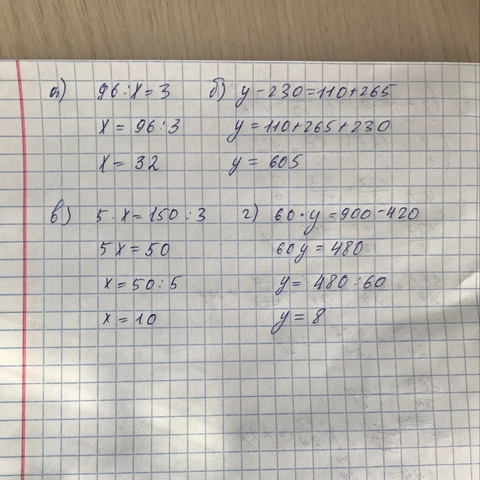 а) 96:x=3
x = 96:3
x = 32
б) y-230=110+265
y=110+265+230
y = 605
в) 5·x=150:3
5x=50
x=50:5
x=10
г) 60·y=900-420
60y=480
y= 480:60
y=8